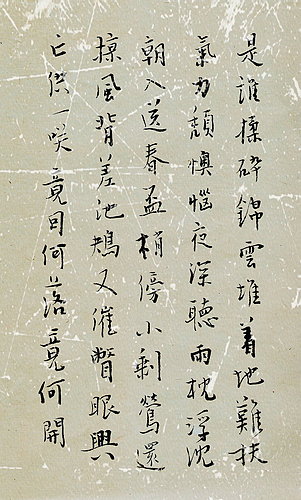 是誰揉碎錦雲堆着地難扶
氣力頹懊惱夜深聽雨枕浮沈
朝入送春盃梢傍小剩鶯還
掠風背差池鴂又催瞥眼興
亡供一咲竟因何落竟何開